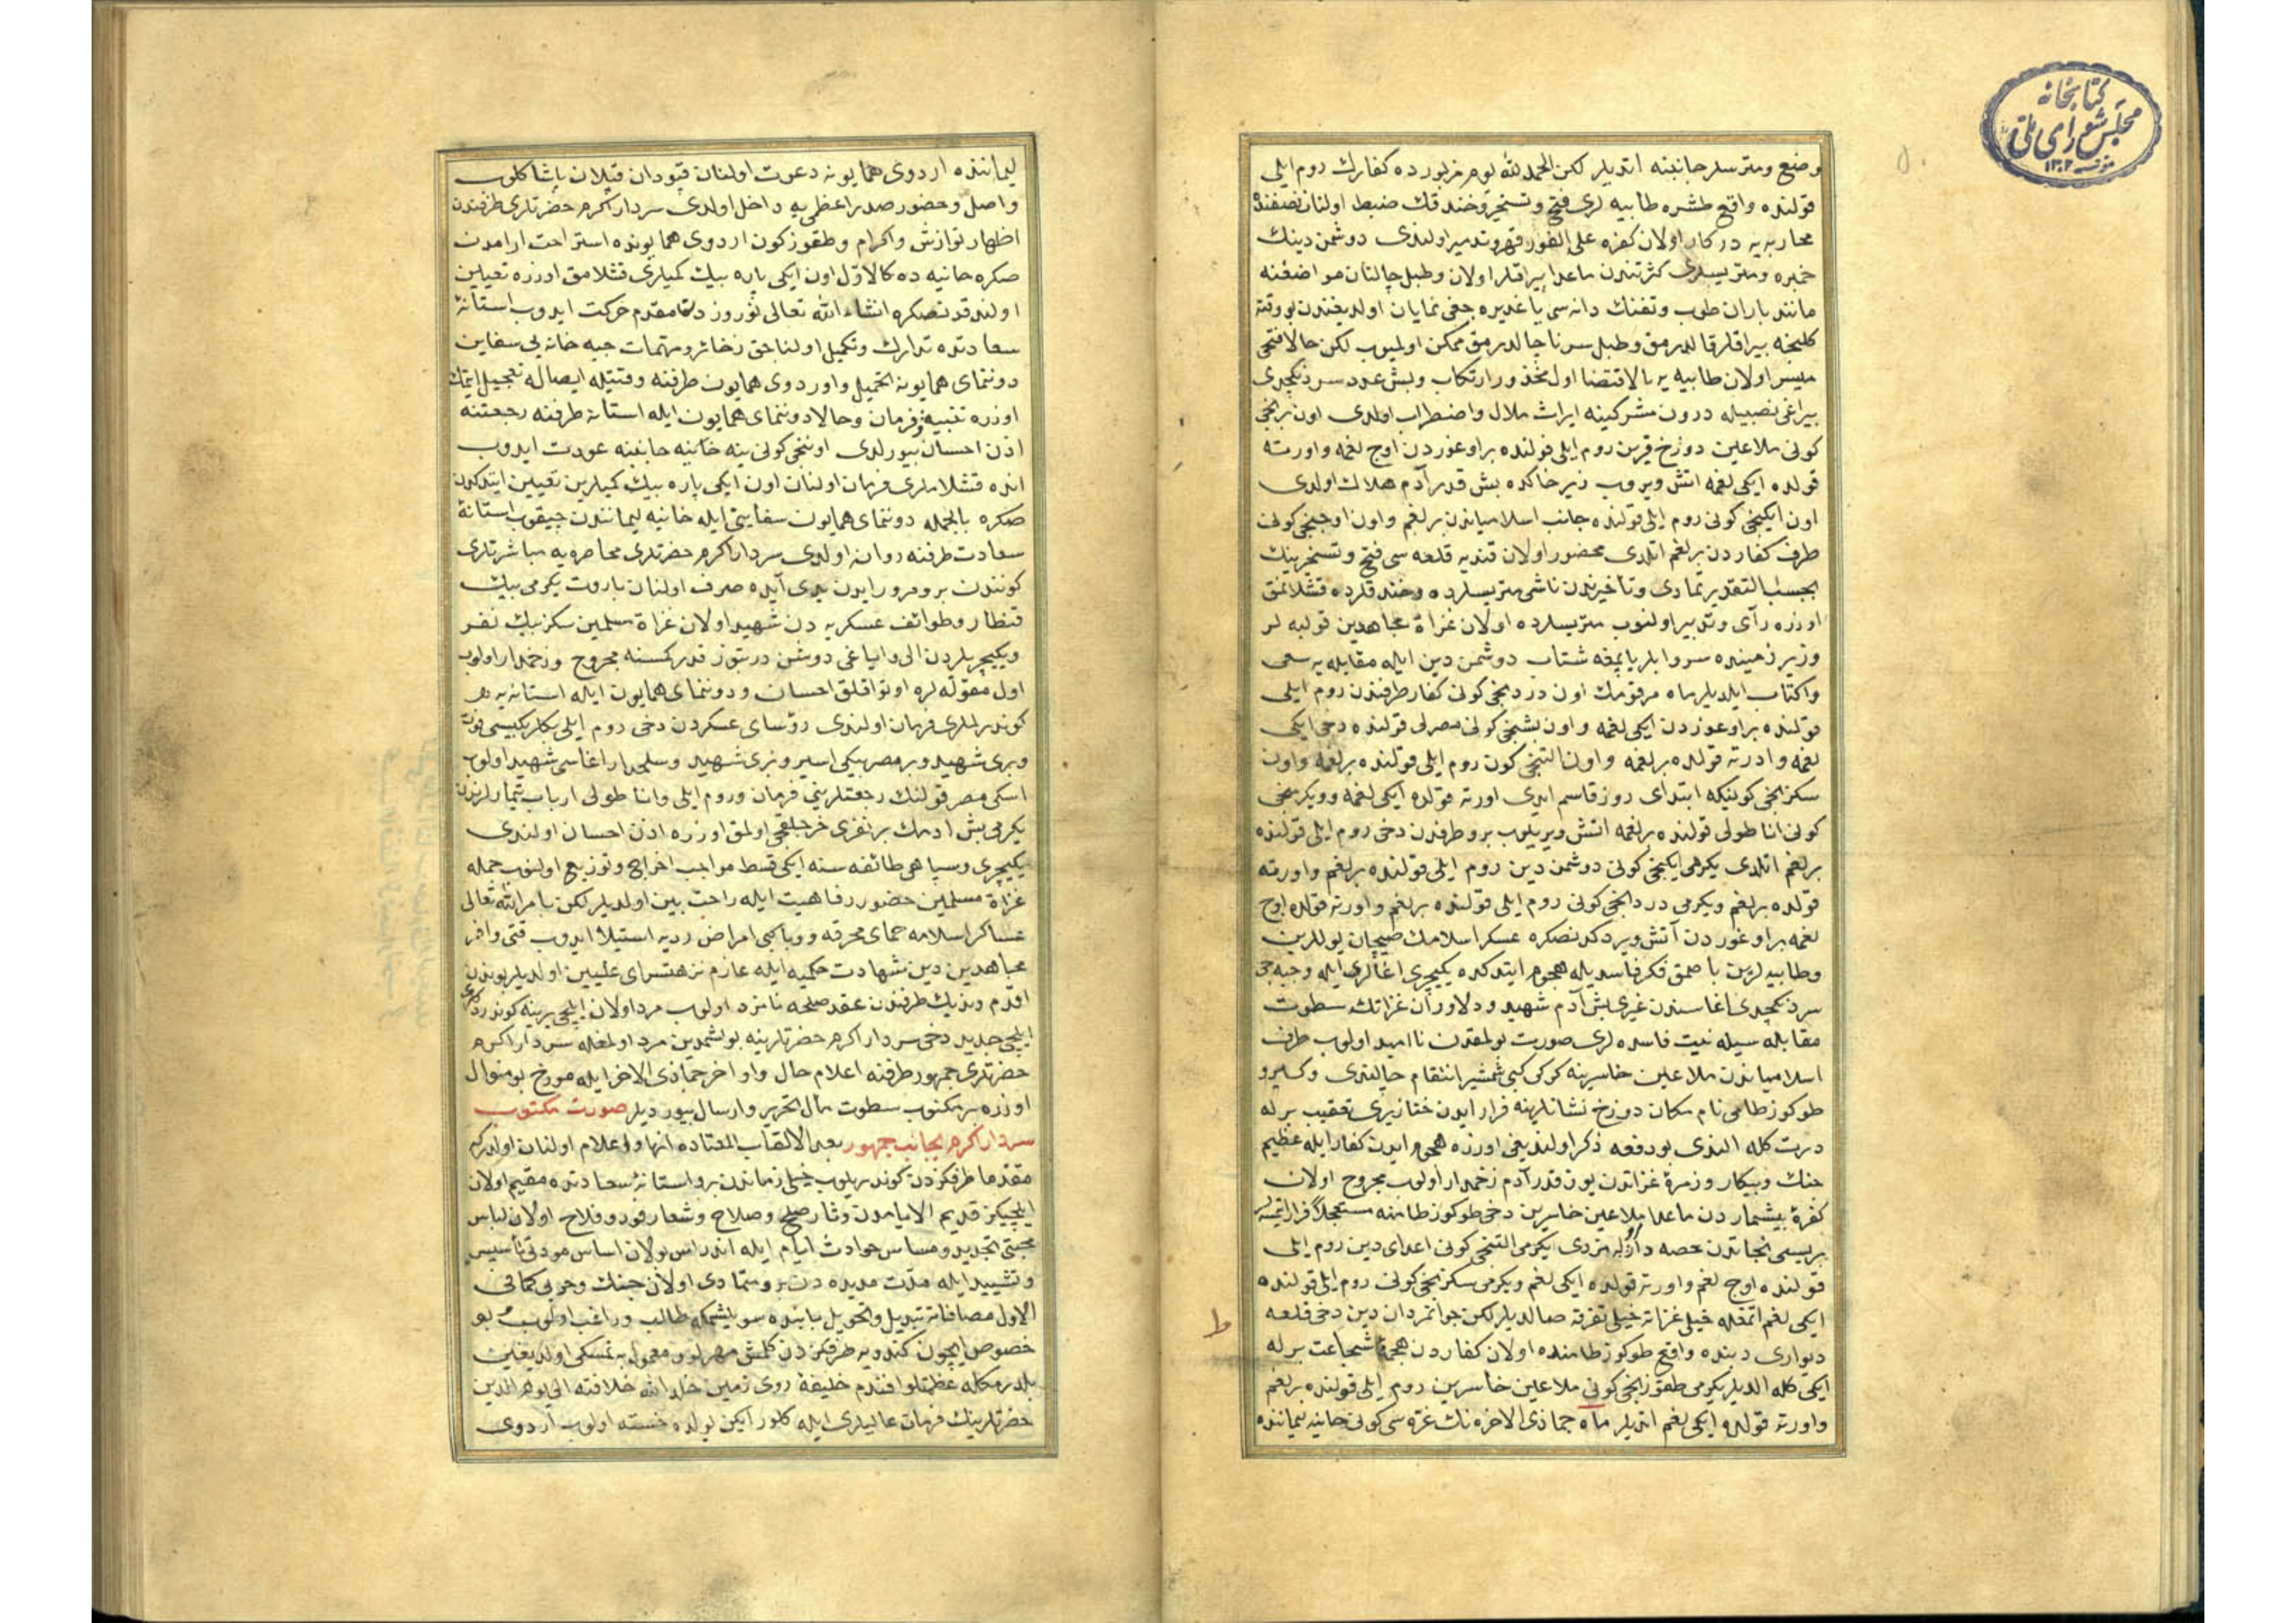 كتابخانه
مجلس شورای ملی
١٣٠٢
وضع ومترسلر جانبنه ايتديلر لكن الحمد لله يوم مزبورده كفارك روم ايلى
قولنده واقع طشره طابيه لرى فتح وتسخير وخندقك ضبط اولنان نصفنده
محاربه يه دركار اولان كفره على الفور قهر وتدمير اولندى دوشمن دينك
خمبره ومتريسلرى كثرتندن ماعدا بيراقلر اولان وطبل چالنان مواضعنه
مانند باران طوب وتفنك دانه سى ياغديره جغى نمايان اولديغندن بو وقته
كلنجه بيراقلر قالدرمق وطبل سرنا چالدرمق ممكن اولميوب لكن حالا فتحى
ميسر اولان طابيه يه بالاقتضا اول محذور ارتكاب وبش عدد سردنكچدى
بيراغى نصبيله درون مشركينه ايراث ملال واضطراب اولدى اون برنجى
كونى ملاعين دوزخ قرين روم ايلى قولنده براوغوردن اوچ لغمه واورته
قولده ايكى لغمه اتش ويروب زير خاكده بش قدر آدم هلاك اولدى
اون ايكنجى كونى روم ايلى قولنده جانب اسلامياندن بر لغم واون اوچنجى كونى
طرف كفاردن بر لغم اتلدى محضور اولان قنديه قلعه سى فتح وتسخيرينك
بحسب التقدير تمادى وتأخيرندن ناشى متريسلرده وخندقلرده قشلانمق
اوزره رأى وتدبير اولنوب متريسلرده اولان غزاة مجاهدين قولبه لر
وزير زمينده سروابلر ياپمغه شتاب دوشمن دين ايله مقابله يه سعى
واكتاب ايلديلر ماه مرقومك اون دردنجى كونى كفار طرفندن روم ايلى
قولنده براوغوردن ايكى لغمه واون بشنجى كونى مصرلى قولنده دخى ايكى
لغمه واورته قولده بر لغمه واون التنجى كون روم ايلى قولنده بر لغمه واون
سكزنجى كونيكه ابتداى روز قاسم ايدى اورته قولده ايكى لغمه ويكرمنجى
كونى اناطولى قولنده بر لغمه اتش ويريلوب بو طرفدن دخى روم ايلى قولنده
بر لغم اتلدى يكرمى ايكنجى كونى دوشمن دين روم ايلى قولنده بر لغم واورته
قولده بر لغم ويكرمى دردنجى كونى روم ايلى قولنده بر لغم واورته قولده اوچ
لغمه براوغوردن آتش ويردكدنصكره عسكر اسلامك صيچان يوللرين
وطابيه لرين باصمق فكر فاسديله هجوم ايتدكده يكيچرى اغالرى ايله وجبه جى
سردنكچدى اغاسندن غيرى بش آدم شهيد ودلاوران غزاتك سطوت
مقابله سيله نيت فاسده لرى صورت بولمقدن نااميد اولوب طرف
اسلامياندن ملاعين خاسرينه كركى كبى شمشير انتقام چالندى وكيرو
طوكوز طامى نام مكان دوزخ نشانلرينه فرار ايدن خنازيرى تعقيب برله
درت كله الندى بو دفعه ذكر اولنديغى اوزره هجوم ايدن كفار ايله عظيم
جنك وپيكار وزمرۀ غزاتدن يوز قدر آدم زخمدار اولوب مجروح اولان
كفرۀ بيشماردن ماعدا ملاعين خاسرين دخى طوكوز طامنه مستعجلا فرار ايتمشلر
بريسى نجاتدن حصه دار اوله مزدى يكرمى التنجى كونى اعداى دين روم ايلى
قولنده اوچ لغم واورته قولده ايكى لغم ويكرمى سكزنجى كونى روم ايلى قولنده
ايكى لغم اتمغله خيلى غزاته خيلى تفرقه صالديلر لكن جوانمردان دين دخى قلعه
ديوارى دبنده واقع طوكوز طامنده اولان كفاردن هجمۀ شجاعت برله
ايكى كله الديلر يكرمى طقوزنجى كونى ملاعين خاسرين روم ايلى قولنده بر لغم
واورته قولده ايكى لغم اتديلر ماه جماذى الاخره نك غره سى كونى حانيه ليماننده
ط
ليماننده اردوى همايونه دعوت اولنان قپودان قپلان پاشا كلوب
واصل وحضور صدر اعظمى يه داخل اولدى سردار اكرم حضرتلرى طرفندن
اظهار نوازش واكرام وطقوز كون اردوى همايونده استراحت ارامدن
صكره حانيه ده كالاول اون ايكى پاره بيك كميلرى قشلامق اوزره تعيين
اولندقدنصكره انشاء الله تعالى نوروزدن مقدم حركت ايدوب استانۀ
سعادتده تدارك وتكميل اولناجق زخائر ومهمات جبه خانه يى سفاين
دوننماى همايونه تحميل واوردوى همايون طرفنه وقتيله ايصاله تعجيل ايتمك
اوزره تنبيه وفرمان وحالا دوننماى همايون ايله استانه طرفنه رجعتنه
اذن احسان بيورلدى اوننجى كونى ينه خانيه جانبنه عودت ايدوب
انده قشلاملرى فرمان اولنان اون ايكى پاره بيك كميلرين تعيين ايتدكدن
صكره بالجمله دوننماى همايون سفاينى ايله خانيه ليمانندن چيقوب استانۀ
سعادت طرفنه روان اولدى سردار اكرم حضرتلرى محاصره يه مباشرتلرى
كونندن برو مرور ايدن يدى آيده صرف اولنان باروت يكرمى بيك
قنطار وطوائف عسكريه دن شهيد اولان غزاة مسلمين سكز بيك نفر
ويكيچريلردن الى واياغى دوشن درتيوز قدر كمسنه مجروح وزخمدار اولوب
اول مقوله لره اوتوراقلق احسان ودوننماى همايون ايله استانه يه
كوندرلملرى فرمان اولندى رؤساى عسكردن دخى روم ايلى بكلربكيسى فوت
وبرى شهيد وبر مصر بيكى اسير وبرى شهيد وسلحدار اغاسى شهيد اولوب
اسكى مصر قولنك رجعتلرينى فرمان وروم ايلى واناطولى ارباب تيمارلرندن
يكرمى بش ادمك بر نفرى خرجلقجى اولمق اوزره اذن احسان اولندى
يكيچرى وسپاهى طائفه سنه ايكى قسط مواجب اخراج وتوزيع اولنوب جمله
غزاة مسلمين حضور رفاهيت ايله راحت بين اولديلر لكن بامر الله تعالى
عساكر اسلامه حماى محرقه ووبا كبى امراض رديه استيلا ايدوب قتى وافر
مجاهدين دين شهادت حكميه ايله عازم نزهتسراى عليين اولديلر بوندن
اقدم ونديك طرفندن عقد صلحه نامزد اولوب مرد اولان ايلچى يرينه كوندردكلرى
ايلچى جديد دخى سردار اكرم حضرتلرينه بولشمدين مرد اولمغله سردار اكرم
حضرتلرى جمهور طرفنه اعلام حال واواخر جماذى الاخر ايله مورخ بو منوال
اوزره بر مكتوب سطوت مآل تحرير وارسال بيورديلر صورت مكتوب
سردار اكرم بجانب جمهور بعد الالقاب المعتاده انها واعلام اولنان اولدركه
مقدما طرفكزدن كوندريلوب خيلى زماندن برو استانۀ سعادتده مقيم اولان
ايلچيكز قديم الايامدن دثار صلح وصلاح وشعار فوز وفلاح اولان لباس
محبتى تجديد ومساس حوادث ايام ايله اندراس بولان اساس مودتى تأسيس
وتشييد ايله مدت مديده دن برو متمادى اولان جنك وحربى كما فى
الاول مصافاته تبديل وتحويل بابنده سويلشمكه طالب وراغب اولوب بو
خصوص ايچون كندويه طرفكزدن كلمش مهرلو ومعمول به تمسكى اولديغنى
بلدرمكله عظمتلو افندم خليفۀ روى زمين خلد الله خلافته الى يوم الدين
حضرتلرينك فرمان عاليلرى ايله كلور ايكن يولده خسته اولوب اردوى